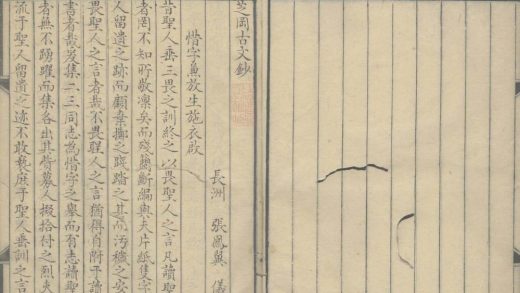 芝岡古文鈔
惜字兼放生施衣啟
長洲 張鳳翼
昔聖人垂三畏之訓終之以畏聖人之言凡讀聖
者罔不知所敬凜矣而殘蘭斷編與夫片紙隻字
人留遺之跡而顧棄擲之踐踏之甚而汚穢之安
畏聖人之言者哉不畏聖人之言猶得自附乎讀
書者哉爰集二三同志為惜字之舉而有志讀聖
者無不踴躍而集各出其貲募人掇拾付之烈
流乎聖人留遺之迹不敢褻庶乎聖人垂訓之言